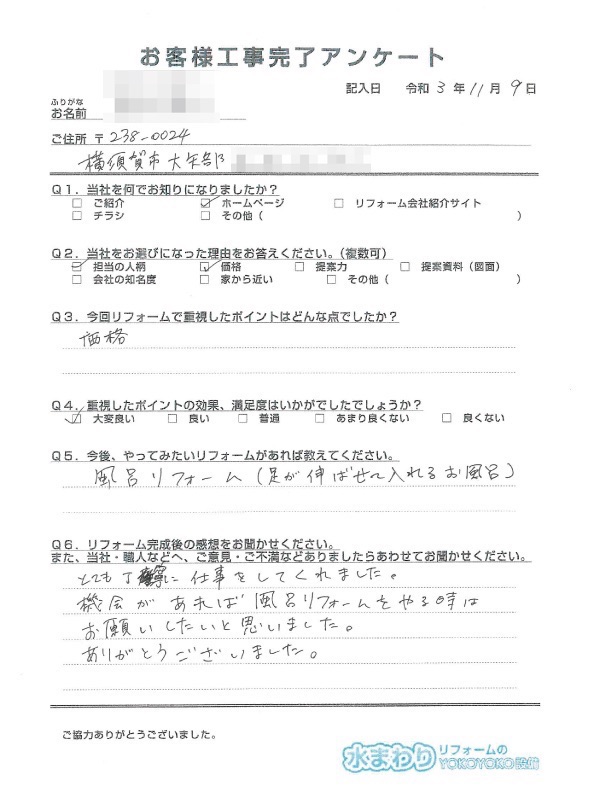 お客様工事完了アンケート
記入日 令和 3 年 11 月 9 日
ふりがな
お名前
ご住所 〒 238-0024
横須賀市大矢部
Q1．当社を何でお知りになりましたか？
□ ご紹介 ☑ ホームページ □ リフォーム会社紹介サイト
□ チラシ □ その他（ ）
Q2．当社をお選びになった理由をお答えください。（複数可）
☑ 担当の人柄 ☑ 価格 □ 提案力 □ 提案資料（図面）
□ 会社の知名度 □ 家から近い □ その他（ ）
Q3．今回リフォームで重視したポイントはどんな点でしたか？
価格
Q4．重視したポイントの効果、満足度はいかがでしたでしょうか？
☑ 大変良い □ 良い □ 普通 □ あまり良くない □ 良くない
Q5．今後、やってみたいリフォームがあれば教えてください。
風呂リフォーム（足が伸ばせて入れるお風呂）
Q6．リフォーム完成後の感想をお聞かせください。
また、当社・職人などへ、ご意見・ご不満などありましたらあわせてお聞かせください。
とても丁寧に仕事をしてくれました。
機会があれば風呂リフォームをやる時は
お願いしたいと思いました。
ありがとうございました。
ご協力ありがとうございました。
水まわりリフォームの
YOKOYOKO設備